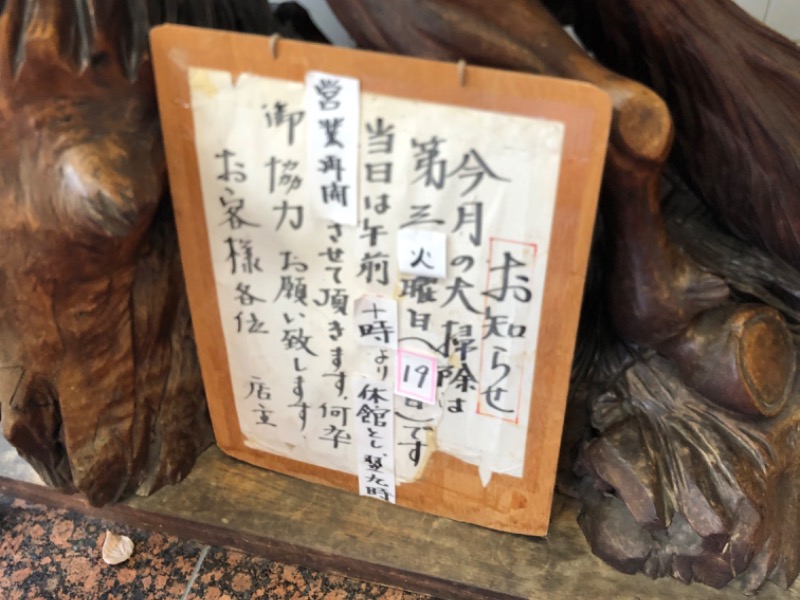 お知らせ
今月の大掃除は
第三火曜日(19日)です
当日は午前十時より休館とし、翌九時
営業再開させて頂きます。何卒
御協力お願い致します。
お客様各位 店主